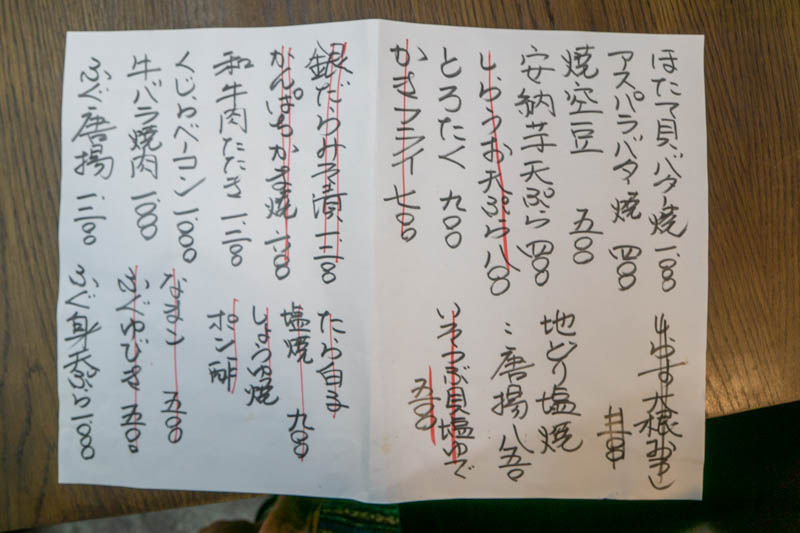 ほたて貝バター焼
アスパラバター焼 四〇〇
焼空豆 五〇〇
安納芋天ぷら 四〇〇
しらうお天ぷら 八〇〇
とろたく 九〇〇
かきフライ 七〇〇
しらす大根おろし
地どり塩焼
〃唐揚 八五〇
いそつぶ貝塩ゆで
五〇〇
銀だらみそ漬 一、二〇〇
かんぱちかま焼 六〇〇
和牛肉たたき 一、二〇〇
くじらベーコン 一、〇〇〇
牛バラ焼肉 一、〇〇〇
ふぐ唐揚 一、二〇〇
たら白子
塩焼 九〇〇
しょうゆ焼
ポン酢
なまこ 五〇〇
ふぐゆびき 五〇〇
ふぐ身天ぷら 一、〇〇〇